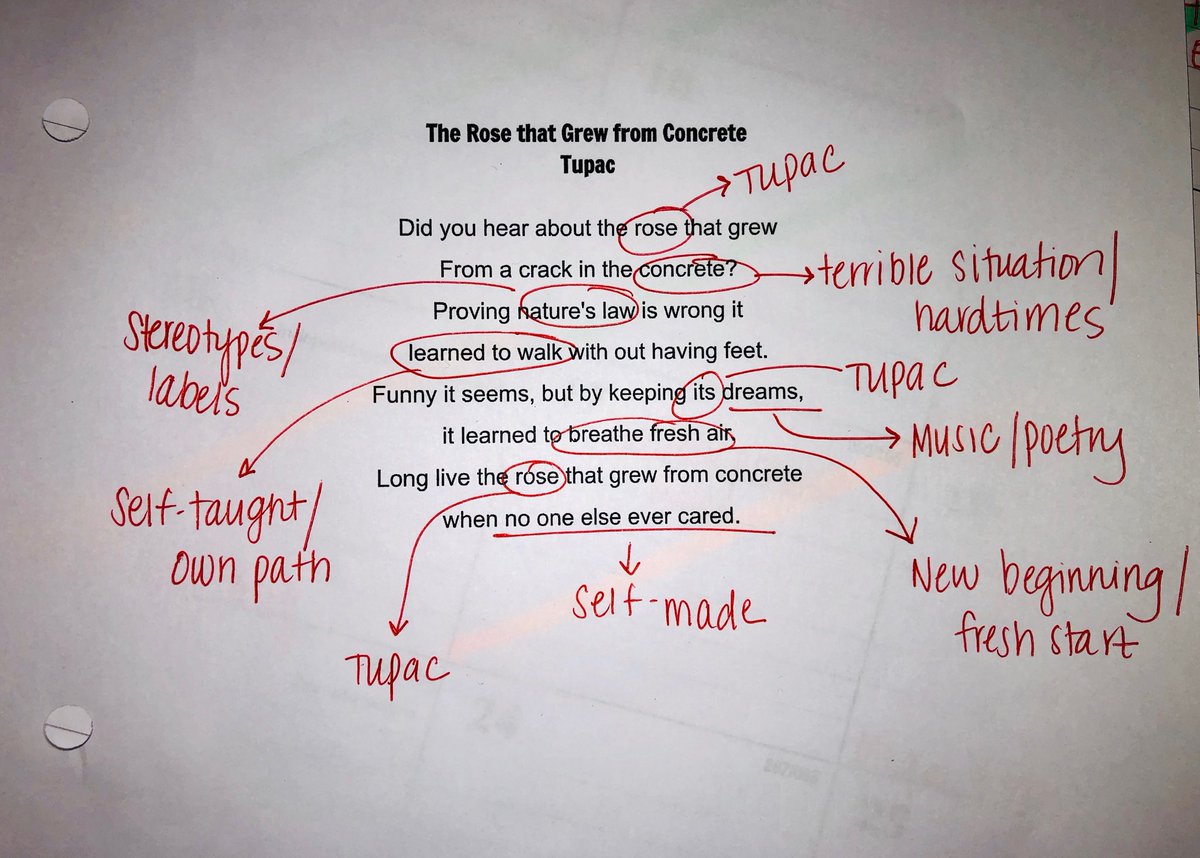 The Rose that Grew from Concrete
Tupac
Tupac
Did you hear about the rose that grew
From a crack in the concrete?
terrible situation/
hardtimes
Proving nature's law is wrong it
Stereotypes/
labels
learned to walk with out having feet.
Tupac
Funny it seems, but by keeping its dreams,
it learned to breathe fresh air.
Music/poetry
Long live the rose that grew from concrete
Self-taught/
own path
when no one else ever cared.
New beginning/
fresh start
Self-made
Tupac